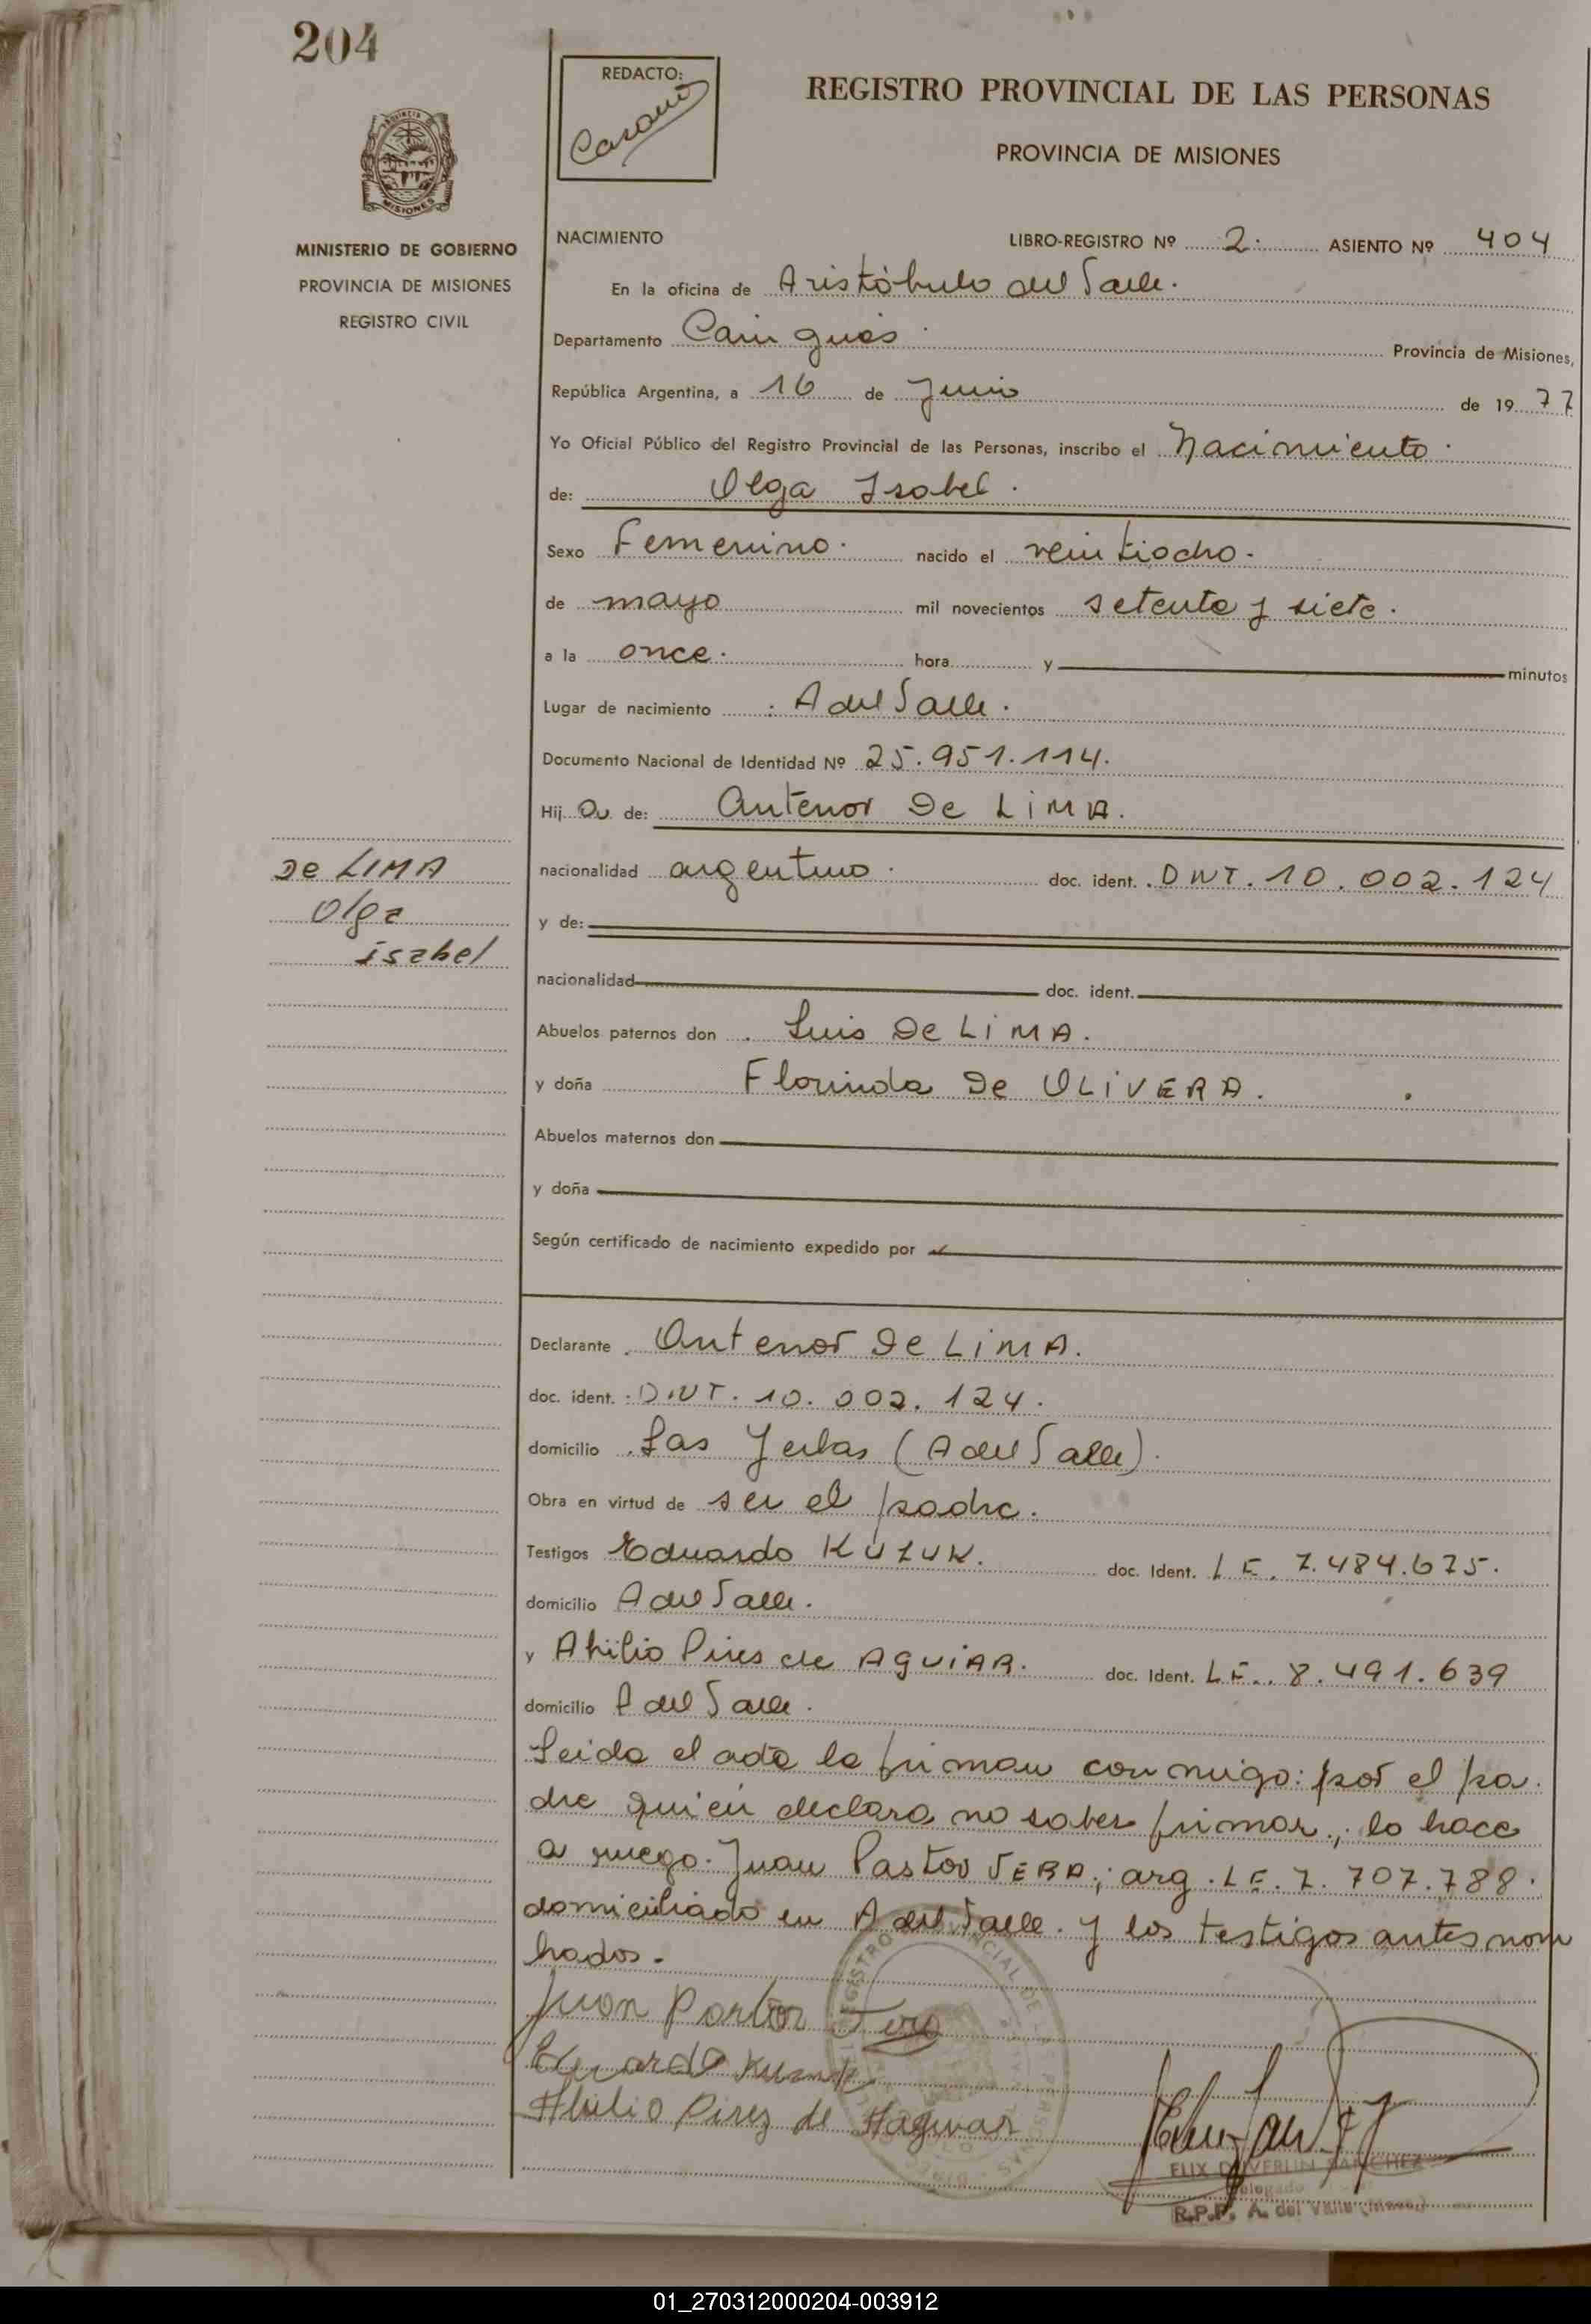 204
REDACTO:
REGISTRO PROVINCIAL DE LAS PERSONAS
PROVINCIA DE MISIONES
MISIONES
MINISTERIO DE GOBIERNO
PROVINCIA DE MISIONES
REGISTRO CIVIL
NACIMIENTO LIBRO-REGISTRO Nº 2. ASIENTO Nº 404
En la oficina de Aristóbulo del Valle.
Departamento Cainguás Provincia de Misiones,
República Argentina, a 16 de Junio de 1977
Yo Oficial Público del Registro Provincial de las Personas, inscribo el Nacimiento.
de: Olga Isabel.
Sexo Femenino. nacido el veintiocho.
de mayo mil novecientos setenta y siete.
a la once. hora y minutos
Lugar de nacimiento : A del Valle.
Documento Nacional de Identidad Nº 25.951.114.
Hij a de: Antenor De LiMA.
De LIMA
Olga
isabel
nacionalidad argentino. doc. ident. DNI. 10.002.124
y de:
nacionalidad doc. ident.
Abuelos paternos don Luis De LiMA.
y doña Florinda De OLiVERA.
Abuelos maternos don
y doña
Según certificado de nacimiento expedido por
Declarante Antenor De LiMA.
doc. ident. D.N.I. 10.002.124.
domicilio Las Yerbas (A del Valle).
Obra en virtud de ser el padre.
Testigos Eduardo KUZUK. doc. Ident. LE. 7.484.675.
domicilio A del Valle.
y Ahilio Pires de AGUiAR. doc. Ident. LE. 8.491.639
domicilio A del Valle.
Leida el acta la firman conmigo: por el pa.
dre quien declara no saber firmar, lo hace
a ruego. Juan Pastor VERA; arg. LE. 7.707.788.
domiciliado en A del Valle. y los testigos antes nom
bados.
Juan Pastor Vera
Eduardo Kuzuk
Ahilio Pirez de Haguiar
FELIX DUVERLIN SANCHEZ
Delegado
R.P.P. A. del Valle (Mnes.)
01_270312000204-003912